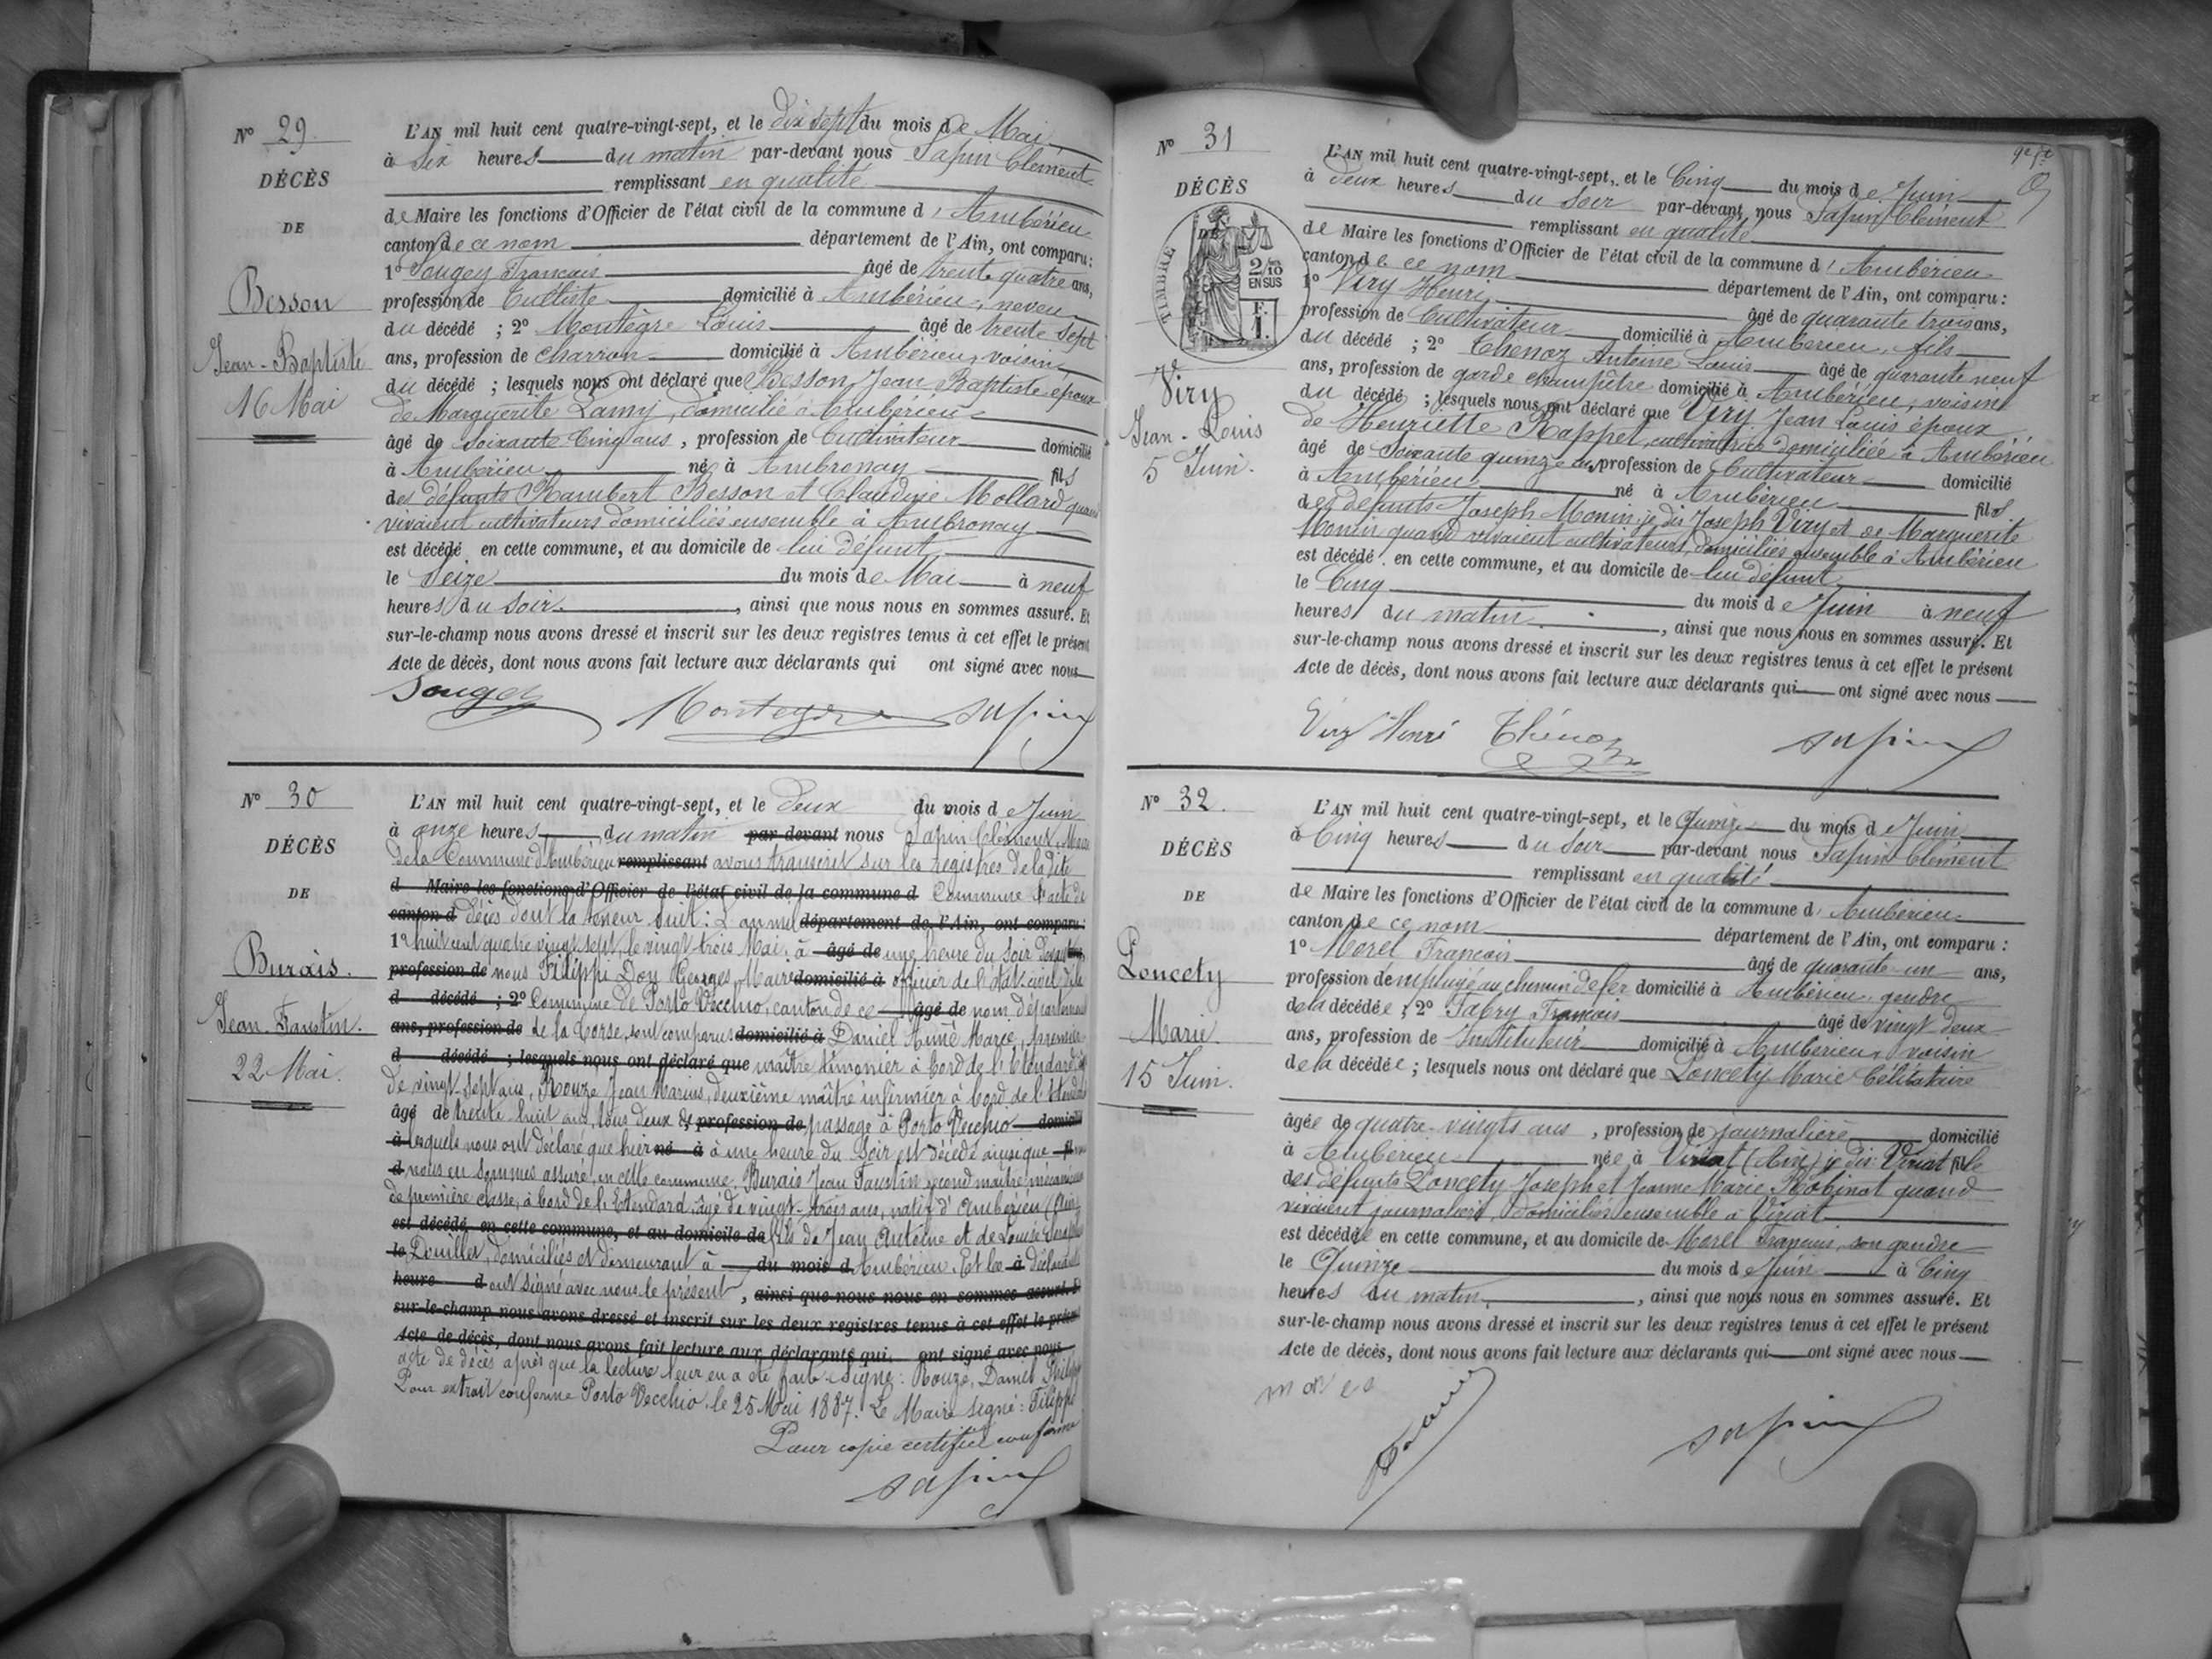 N° 29
DÉCÈS
DE
Besson
Jean-Baptiste
16 Mai
L'AN mil huit cent quatre-vingt-sept, et le dix sept du mois de Mai
à six heures du matin par-devant nous Sapin Clément
remplissant en qualité
de Maire les fonctions d'Officier de l'état civil de la commune d'Ambérieu
canton de ce nom département de l'Ain, ont comparu :
1° Sougey Francois âgé de trente quatre ans,
profession de Tulliste domicilié à Ambérieu, neveu
du décédé ; 2° Montègre Louis âgé de trente sept
ans, profession de charron domicilié à Ambérieu, voisin
du décédé ; lesquels nous ont déclaré que Besson Jean Baptiste époux
de Marguerite Lamy, domicilié à Ambérieu
âgé de soixante cinq ans, profession de Cultivateur domicilié
à Ambérieu né à Ambronay fils
des défunts Rambert Besson et Claudine Mollard quand
vivaient cultivateurs domiciliés ensemble à Ambronay
est décédé en cette commune, et au domicile de lui défunt
le seize du mois de Mai à neuf
heures du soir, ainsi que nous nous en sommes assuré. Et
sur-le-champ nous avons dressé et inscrit sur les deux registres tenus à cet effet le présent
Acte de décès, dont nous avons fait lecture aux déclarants qui ont signé avec nous
Sougey Montegre Sapin
N° 30
DÉCÈS
DE
Burais.
Jean-Faustin.
22 Mai.
L'AN mil huit cent quatre-vingt-sept, et le deux du mois de Juin
à onze heures du matin par-devant nous Sapin Clément, Maire
de la Commune d'Ambérieu remplissant avons transcrit sur les registres de la dite
d Maire les fonctions d'Officier de l'état civil de la commune d Commune l'acte de
canton d décès dont la teneur suit : L'an mil département de l'Ain, ont comparu :
1° huit cent quatre vingt sept, le vingt trois Mai, à âgé de une heure du soir devant ans,
profession de nous Filippi Don Georges, Maire domicilié à officier de l'état civil de la
d décédé ; 2° Commune de Porto Vecchio, canton de ce âgé de nom département
ans, profession de de la Corse, sont comparus domicilié à Daniel Aimé Marie, premier
d décédé ; lesquels nous ont déclaré que maître timonier à bord de l'Etendard, âgé
de vingt-sept ans, Rouze Jean Marius, deuxième maître infirmier à bord de l'Etendard
âgé de trente huit ans, tous deux de profession de passage à Porto Vecchio domicilié
à lesquels nous ont déclaré que hier né à à une heure du soir est décédé ainsi que fil
d nous en sommes assuré, en cette commune, Burais Jean Faustin second maître mécanicien
de première classe, à bord de l'Etendard, âgé de vingt-trois ans, natif d'Ambérieu (Ain)
est décédé en cette commune, et au domicile de fils de Jean Antoine et de Louise
le Douillet, domiciliés et demeurant à du mois d Ambérieu. Et les à déclarants
heure d ont signé avec nous le présent, ainsi que nous nous en sommes assuré. Et
sur-le-champ nous avons dressé et inscrit sur les deux registres tenus à cet effet le présent
Acte de décès, dont nous avons fait lecture aux déclarants qui ont signé avec nous
acte de décès après que la lecture leur en a été faite. Signé : Rouze, Daniel, Philippi
Pour extrait conforme Porto Vecchio, le 25 Mai 1887. Le Maire signé : Filippi
Pour copie certifiée conforme
Sapin
N° 31
DÉCÈS
DE
TIMBRE
2/10
EN SUS
F.
1.
Viry
Jean-Louis
5 Juin.
L'AN mil huit cent quatre-vingt-sept, et le Cinq du mois de Juin
à deux heures du soir par-devant nous Sapin Clément
remplissant en qualité
de Maire les fonctions d'Officier de l'état civil de la commune d'Ambérieu
canton de ce nom département de l'Ain, ont comparu :
1° Viry Henri âgé de quarante trois ans,
profession de Cultivateur domicilié à Ambérieu, fils
du décédé ; 2° Thenoz Antoine Louis âgé de quarante neuf
ans, profession de garde champêtre domicilié à Ambérieu, voisin
du décédé ; lesquels nous ont déclaré que Viry Jean Louis époux
de Henriette Rappet, cultivatrice domiciliée à Ambérieu
âgé de soixante quinze ans, profession de Cultivateur domicilié
à Ambérieu né à Ambérieu fils
des défunts Joseph Monin je dis Joseph Viry et de Marguerite
Monin quand vivaient cultivateurs, domiciliés ensemble à Ambérieu
est décédé en cette commune, et au domicile de lui défunt
le Cinq du mois de Juin à neuf
heures du matin, ainsi que nous nous en sommes assuré. Et
sur-le-champ nous avons dressé et inscrit sur les deux registres tenus à cet effet le présent
Acte de décès, dont nous avons fait lecture aux déclarants qui ont signé avec nous
Viry Henri Thénoz Sapin
N° 32.
DÉCÈS
DE
Loncety
Marie.
15 Juin.
L'AN mil huit cent quatre-vingt-sept, et le Quinze du mois de Juin
à Cinq heures du soir par-devant nous Sapin Clément
remplissant en qualité
de Maire les fonctions d'Officier de l'état civil de la commune d'Ambérieu
canton de ce nom département de l'Ain, ont comparu :
1° Morel François âgé de quarante-un ans,
profession d'employé au chemin de fer domicilié à Ambérieu, gendre
de la décédée ; 2° Fabry François âgé de vingt deux
ans, profession de Instituteur domicilié à Ambérieu, voisin
de la décédée ; lesquels nous ont déclaré que Loncety Marie Célibataire
âgée de quatre-vingts ans, profession de journalière domicilié
à Ambérieu née à Viriat (Ain) je dis Viriat fille
des défunts Loncety Joseph et Jeanne Marie Robinot quand
vivaient journaliers, domiciliés ensemble à Viriat
est décédée en cette commune, et au domicile de Morel François, son gendre
le Quinze du mois de Juin à Cinq
heures du matin, ainsi que nous nous en sommes assuré. Et
sur-le-champ nous avons dressé et inscrit sur les deux registres tenus à cet effet le présent
Acte de décès, dont nous avons fait lecture aux déclarants qui ont signé avec nous
Sapin